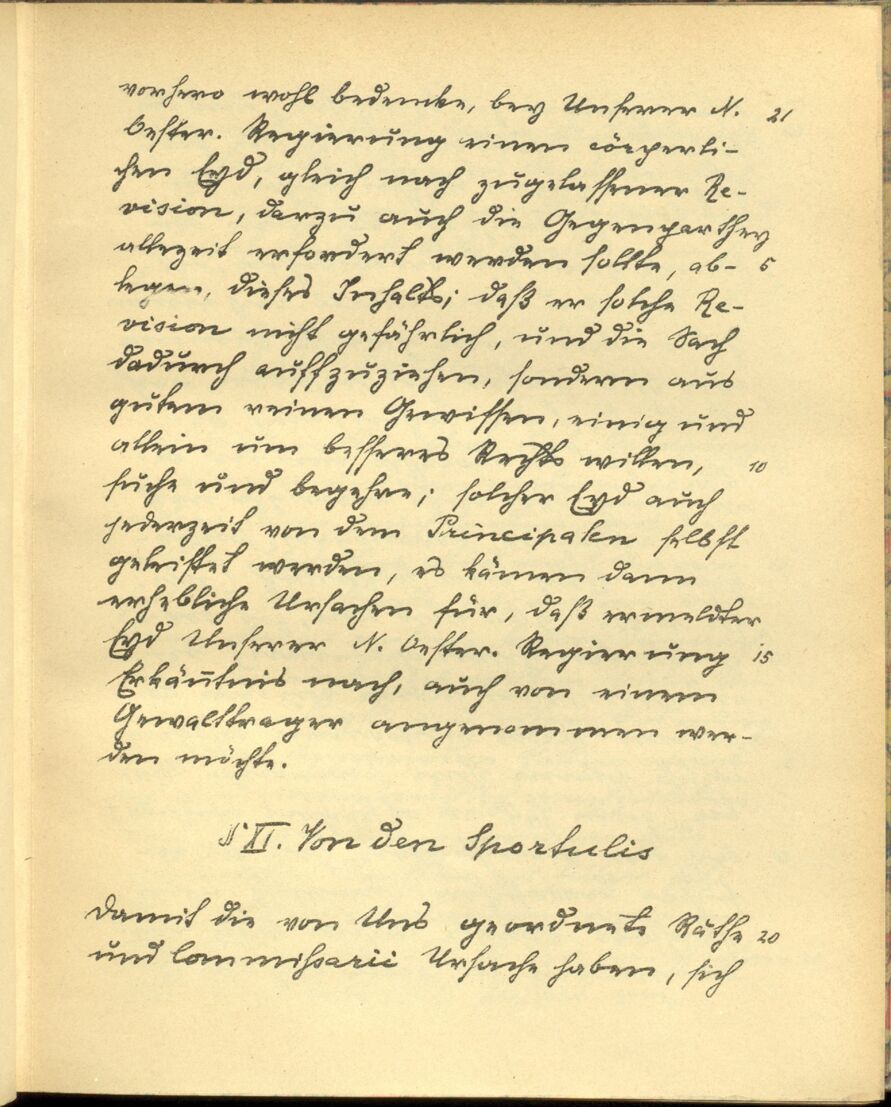 vorhero wohl bedencke, bey Unserer N. 21
Oester. Regierung einen cörperli-
chen Eyd, gleich nach zugelassener Re-
vision, darzu auch die Gegenparthey
allezeit erfordert werden sollte, ab- 5
legen, dieses Inhalts; daß er solche Re-
vision nicht gefährlich, und die Sach
dadurch auffzuziehen, sondern aus
gutem reinen Gewissen, einig und
allein um besseres Rechts willen, 10
suche und begehre; solcher Eyd auch
jederzeit von dem Principalen selbst
geleistet werden, es kämen dann
erhebliche Ursachen für, daß ermeldter
Eyd Unserer N. Oester. Regierung 15
Erkäntnis nach, auch von einem
Gewalttrager angenommen wer-
den möchte.
§ XI. Von den Sportulis
Damit die von Uns geordnete Räthe 20
und Commissarii Ursache haben, sich